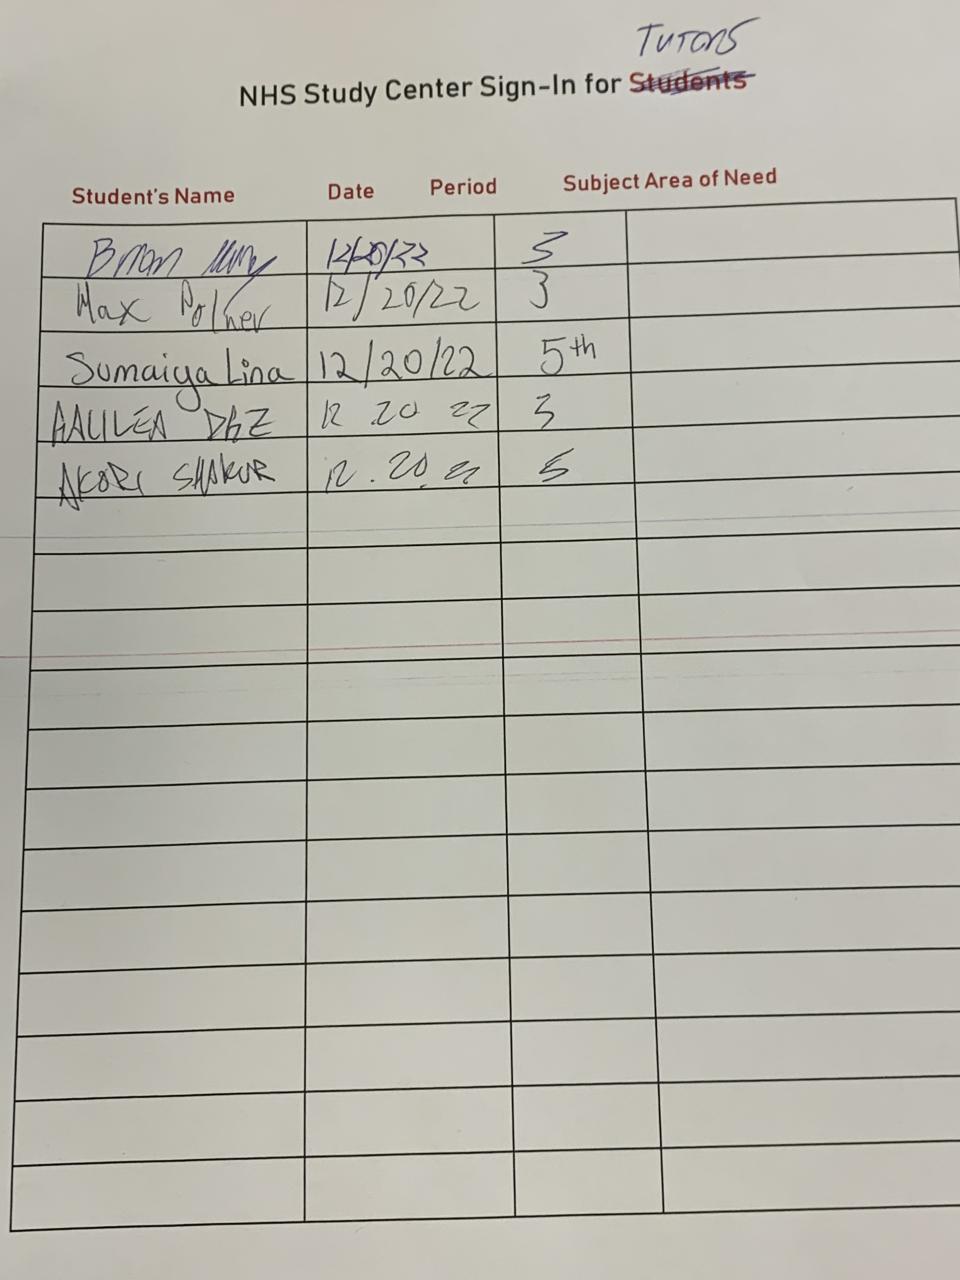 TUTORS
NHS Study Center Sign-In for Students
Student's Name Date Period Subject Area of Need
Brian 12/20/22 3
Max Polner 12/20/22 3
Sumaiya Lina 12/20/22 5th
12 20 22 3
AKORI SHAKUR 12.20.22 5